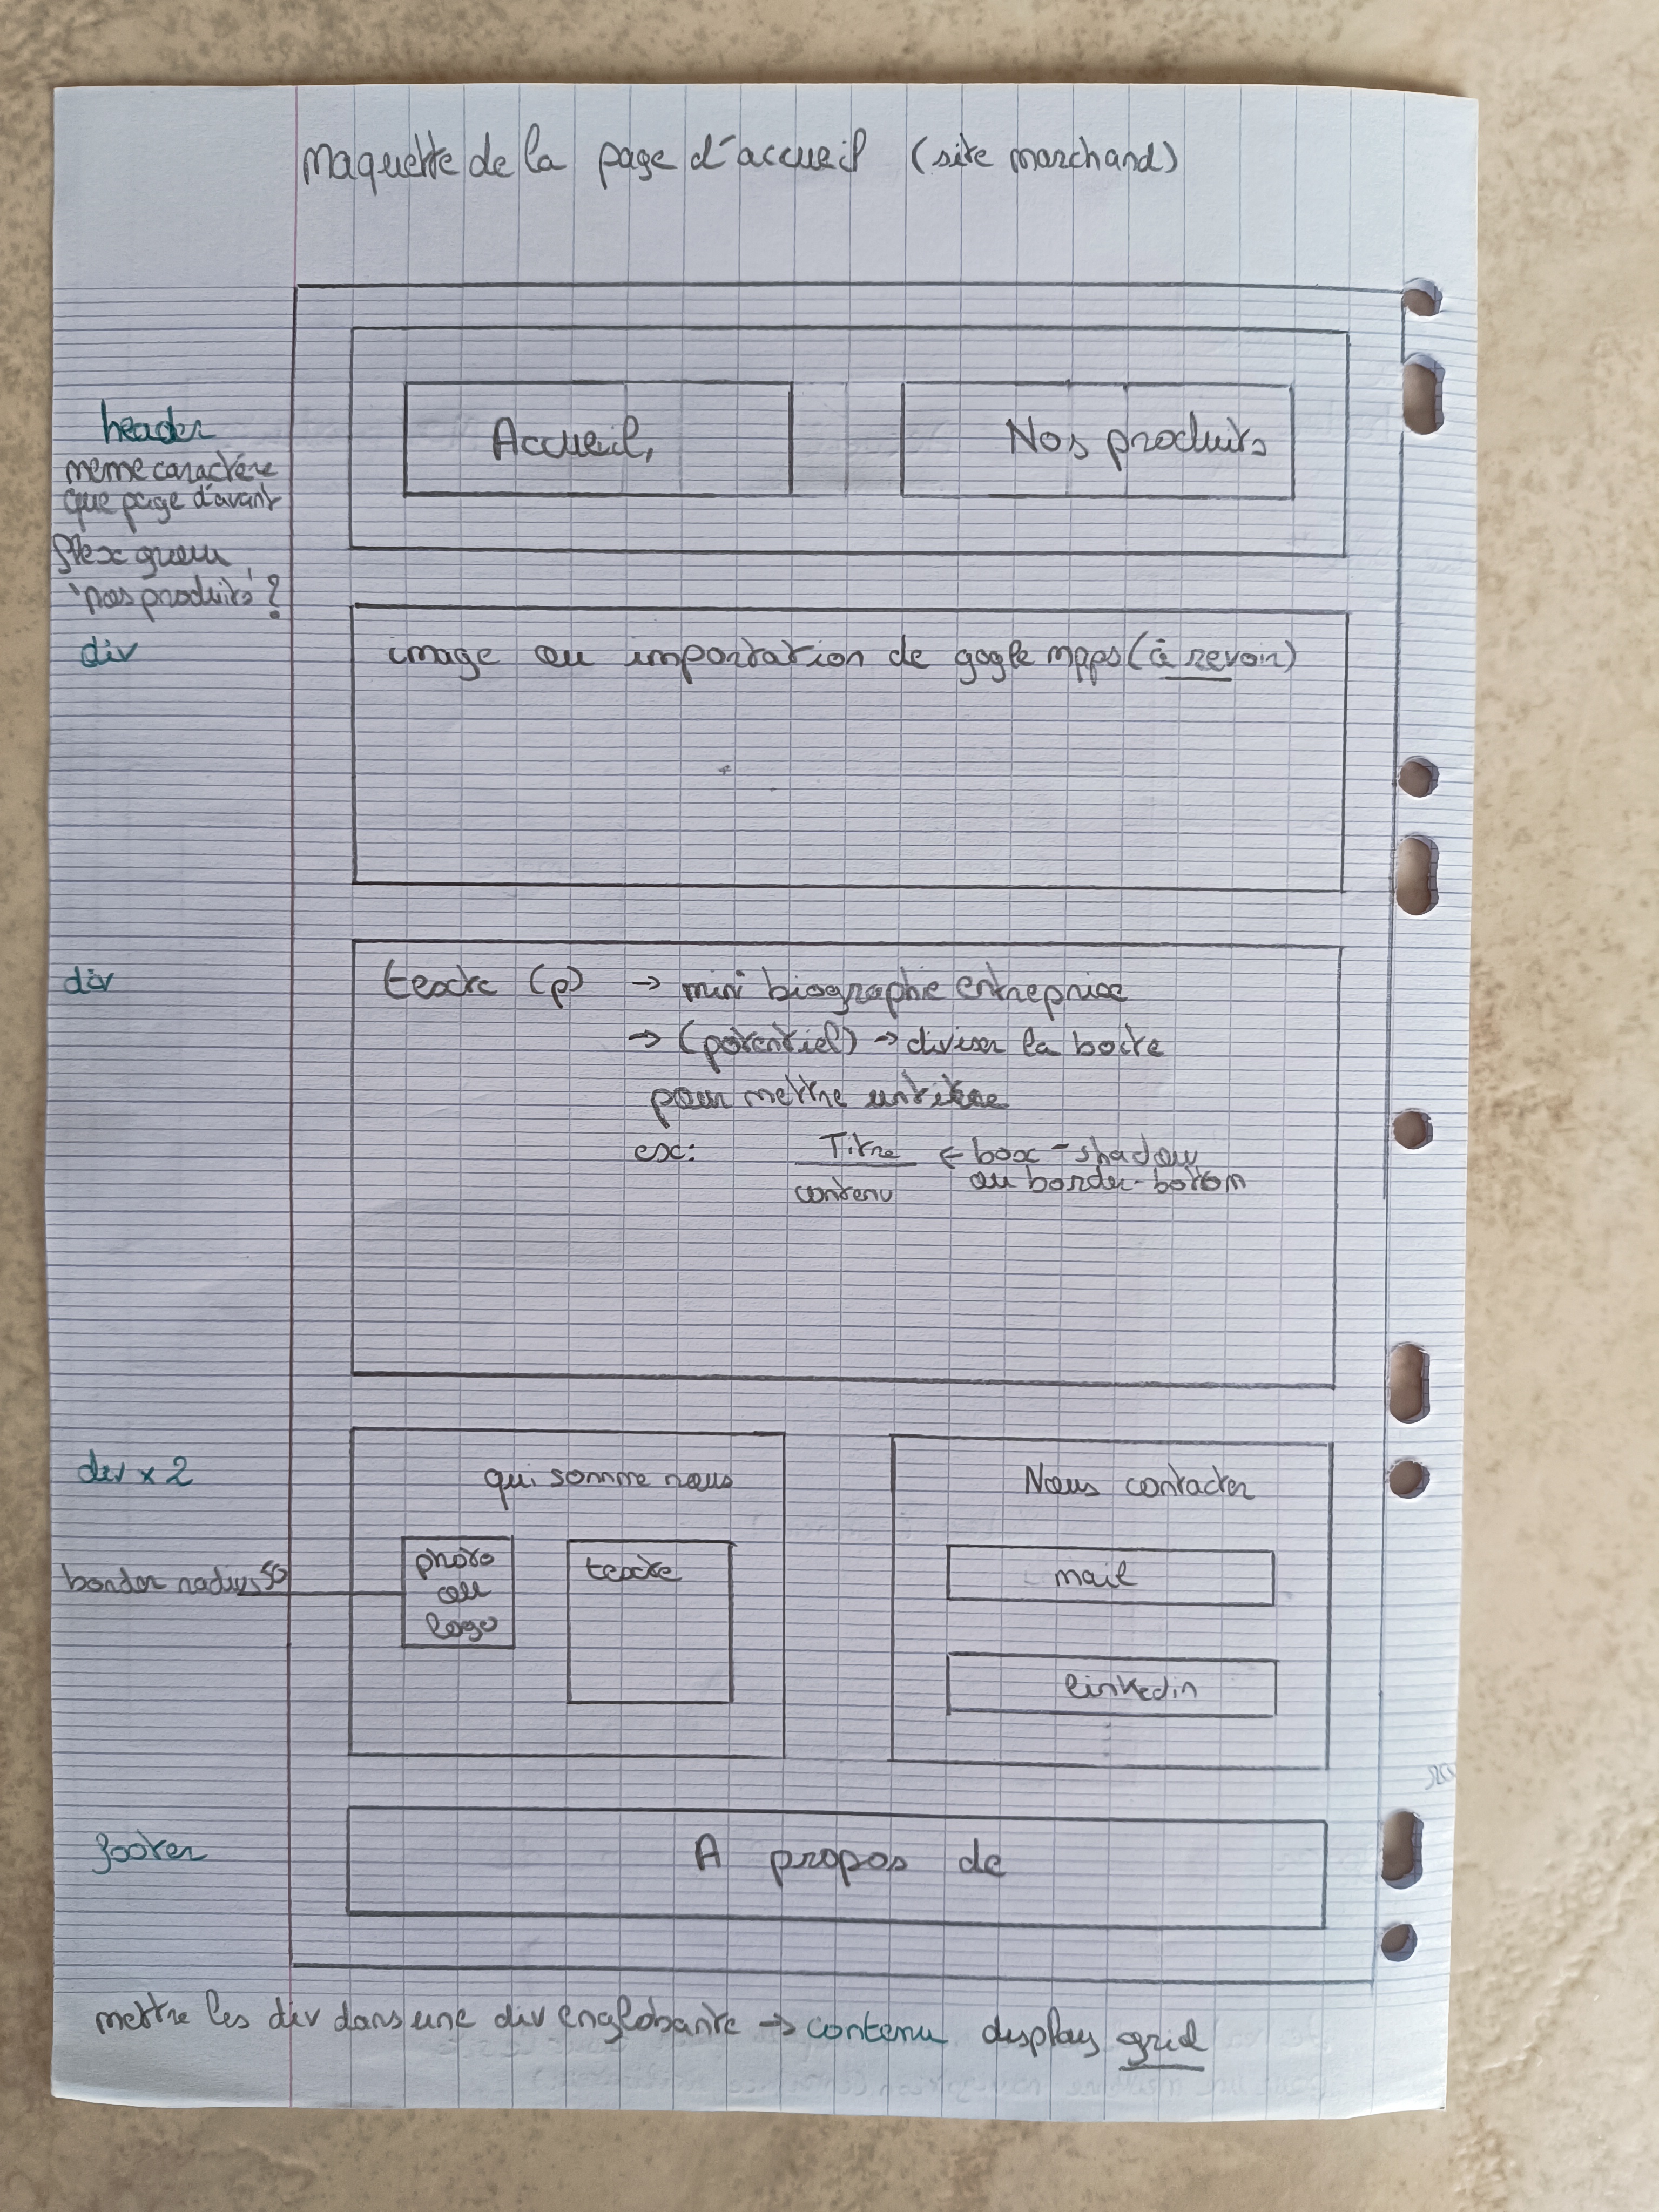 maquette de la page d'accueil (site marchand)
header
meme caractère
que page d'avant
flex grow
"nos produits"?
Accueil,
Nos produits
div
image ou importation de gogle mpps (à revoir)
div
texte (p) → mini biographie entreprise
→ (potentiel) → diviser la boite
pour mettre un titre
ex: Titre ← box-shadow
contenu ou border-botom
div x 2
qui somme nous
Nous contacter
border radius 50
photo
ou
logo
texte
mail
linkedin
footer
A propos de
mettre les div dans une div englobante → contenu display grid